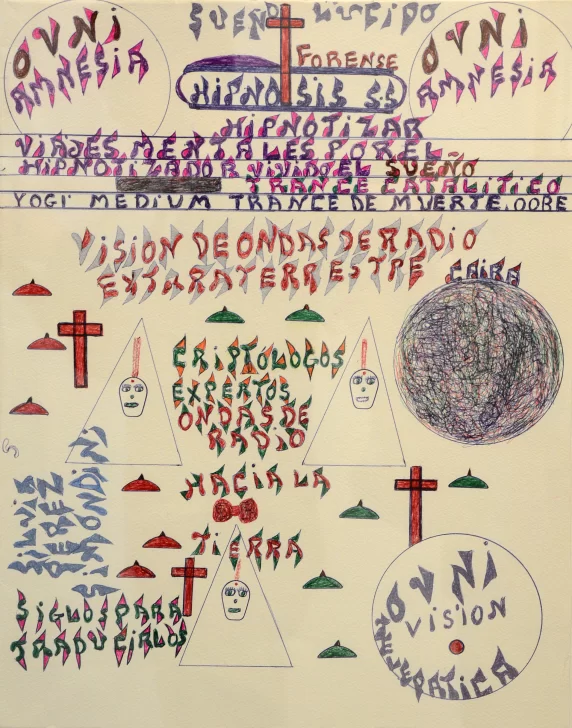 SUEÑO LUCIDO
OVNi
AMNESiA
FORENSE
HiPNOSiS S.S
OVNi
AMNESiA
HiPNOTiZAR
ViAJES MENTALES POR EL
HiPNOTiZADOR ViViDO EL SUEÑO
TRANCE CATALiTiCO
YOGi MEDiUM TRANCE DE MUERTE.OORE
ViSiON DE ONDAS DE RADiO
EXTARATERRESTRE
CRiPTOLOGOS
EXPERTOS
ONDAS DE
RADiO
HACiA LA
TiERRA
SiLViS
PEREZ
SiMONDiNi
SiGLOS PARA
TRADUCiRLOS
OVNi
ViSiON
TELEPATiCA